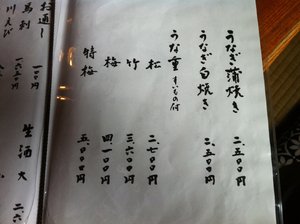 うなぎ蒲焼き 二、五〇〇円
うなぎ白焼き 二、五〇〇円
うな重 すいもの付
松 二、七〇〇円
竹 三、六〇〇円
梅 四、一〇〇円
特梅 五、〇〇〇円
お通し
馬刺
川えび
生酒